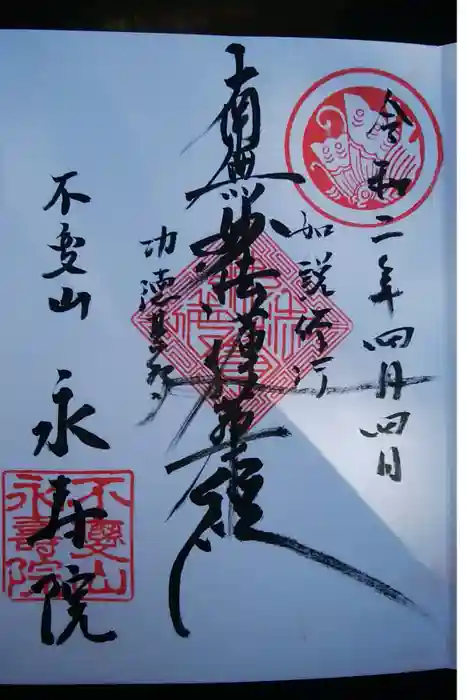 令和二年四月四日
如説修行
南無妙法蓮華経
功徳甚多
不変山
永寿院
不變山
永壽院